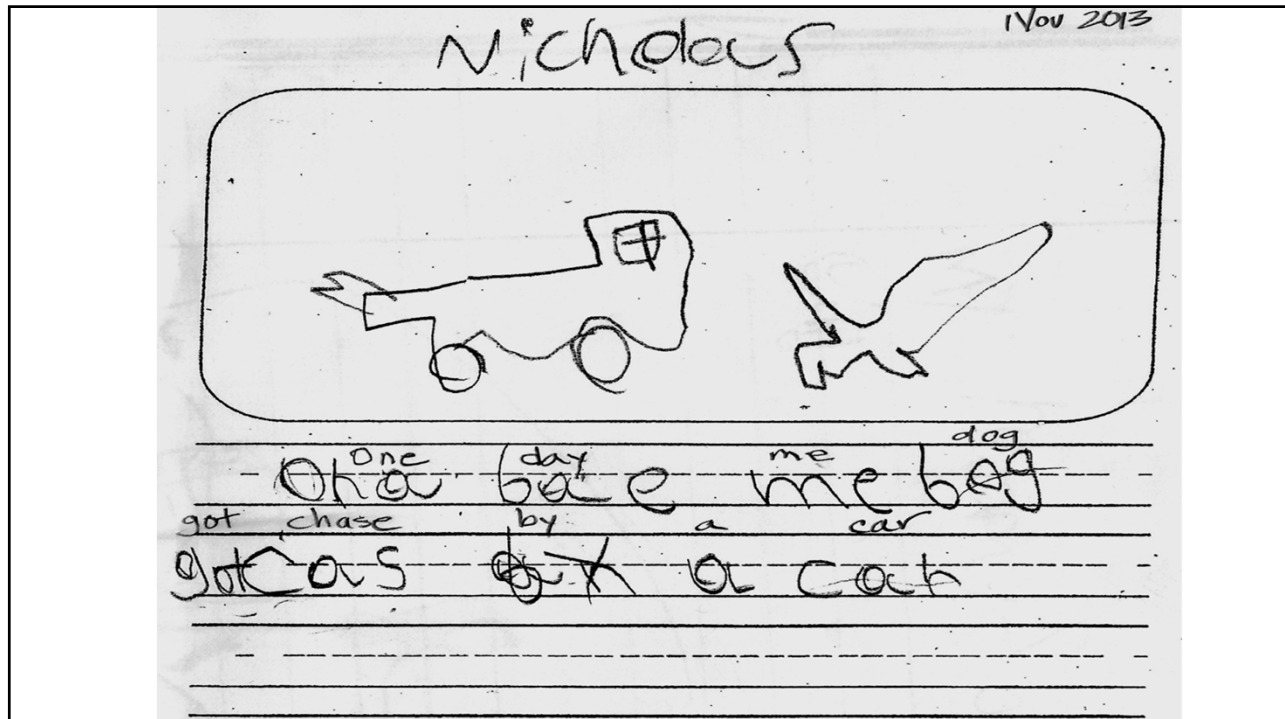 Nov 2013
Nicholas
dog
One day me
Ona bae me bog
got chase by a car
got Cas a car